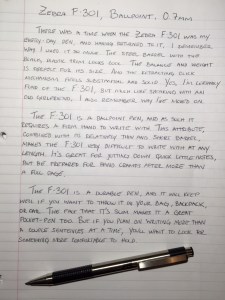 ZEBRA F-301, BALLPOINT, 0.7mm
THERE WAS A TIME WHEN THE ZEBRA F-301 WAS MY
EVERY-DAY PEN, AND HAVING RETURNED TO IT, I REMEMBER
WHY I USED IT SO MUCH. THE STEEL BARREL WITH THE
BLACK PLASTIC TRIM LOOKS COOL. THE BALANCE AND WEIGHT
IS PERFECT FOR ITS SIZE. AND THE RETRACTING CLICK
MECHANISM FEELS SUBSTANTIAL AND SOLID. YES, I'M CLEARLY
FOND OF THE F-301, BUT MUCH LIKE SPEAKING WITH AN
OLD GIRLFRIEND, I ALSO REMEMBER WHY I'VE MOVED ON.
THE F-301 IS A BALLPOINT PEN, AND AS SUCH IS
REQUIRES A FIRM HAND TO WRITE WITH. THIS ATTRIBUTE,
COMBINED WITH ITS RELATIVELY THIN AND SHORT BARREL,
MAKES THE F-301 VERY DIFFICULT TO WRITE WITH AT ANY
LENGTH. IT'S GREAT FOR JOTTING DOWN QUICK LITTLE NOTES,
BUT BE PREPARED FOR HAND CRAMPS AFTER MORE THAN
A FULL PAGE.
THE F-301 IS A DURABLE PEN, AND IT WILL KEEP
WELL IF YOU WANT TO THROW IT IN YOUR BAG, BACKPACK,
OR CAR. THE FACT THAT IT'S SLIM MAKES IT A GREAT
POCKET-PEN TOO. BUT IF YOU PLAN ON WRITING MORE THAN
A COUPLE SENTENCES AT A TIME, YOU'LL WANT TO LOOK FOR
SOMETHING MORE COMFORTABLE TO HOLD.